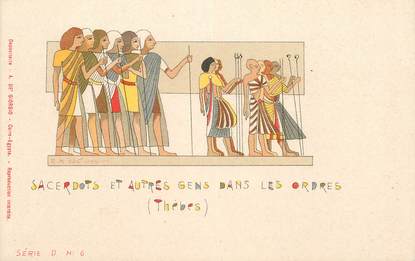 Dépositaire - A. DI GIORGIO - Caire-Egypte. - Reproduction interdite.
SACERDOTS ET AUTRES GENS DANS LES ORDRES
(Thèbes)
SÉRIE D N: 6